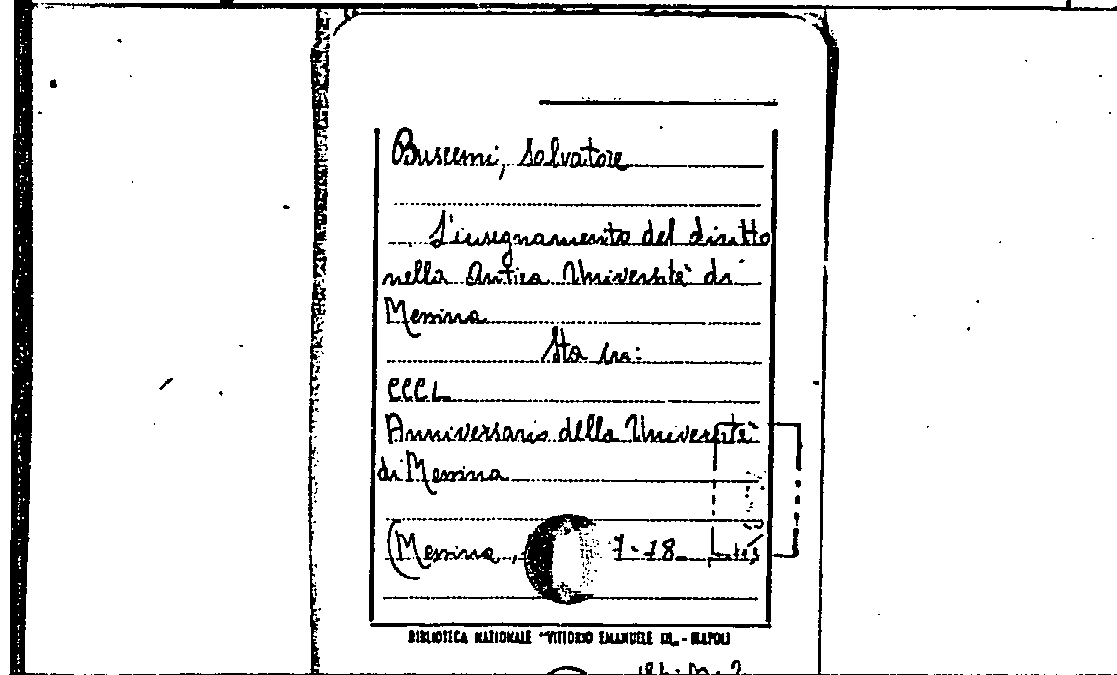 Buscemi, Salvatore
L'insegnamento del diritto
nella Antica Università di
Messina
Sta in:
CCCL
Anniversario della Università
di Messina
(Messina,
BIBLIOTECA NAZIONALE "VITTORIO EMANUELE III" - NAPOLI